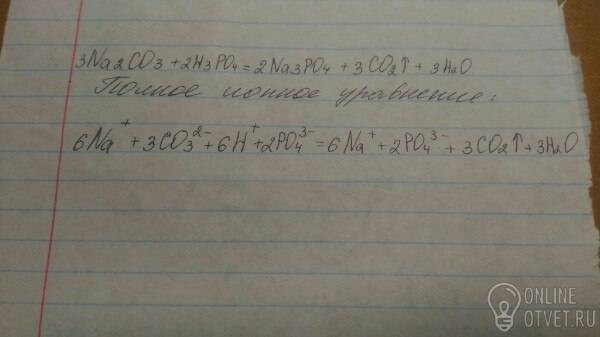 3Na2CO3 + 2H3PO4 = 2Na3PO4 + 3CO2↑ + 3H2O
Полное ионное уравнение:
6Na⁺ + 3CO3²⁻ + 6H⁺ + 2PO4³⁻ = 6Na⁺ + 2PO4³⁻ + 3CO2↑ + 3H2O
ONLINE
OTVET.RU